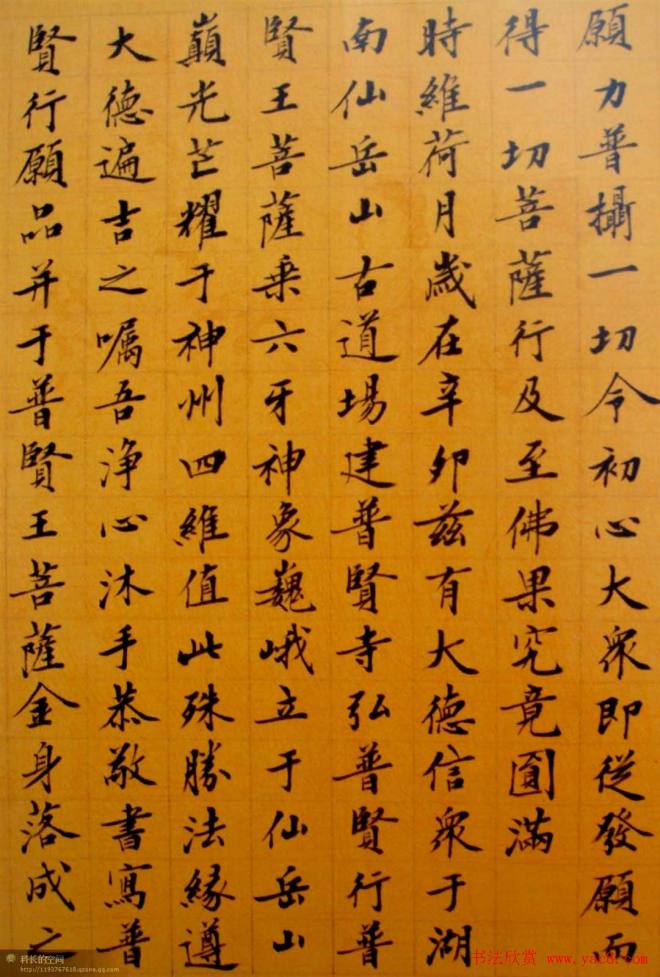 願力普攝一切令初心大眾即從發願而
得一切菩薩行及至佛果究竟圓滿
時維荷月歲在辛卯茲有大德信眾于湖
南仙岳山古道場建普賢寺弘普賢行普
賢王菩薩乘六牙神象巍峨立于仙岳山
巔光芒耀于神州四維值此殊勝法緣遵
大德遍吉之嘱吾淨心沐手恭敬書寫普
賢行願品并于普賢王菩薩金身落成之
科长的空间
http://1193767618.qzone.qq.com
书法欣赏 www.yac8.com